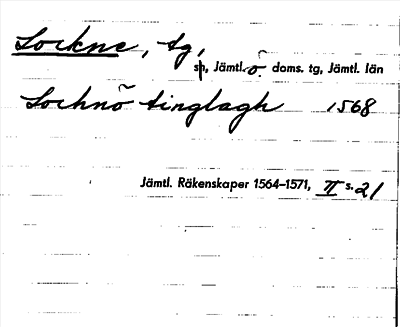 Lockne, tg,
sn, Jämtl. ö. doms. tg, Jämtl. län
Lochnö tinglagh 1568
Jämtl. Räkenskaper 1564–1571, II s. 21